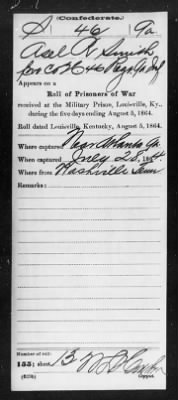 (Confederate.)
S 46 Ga.
Asel R Smith
Co H 46 Reg Ga Inf
Appears on a
Roll of Prisoners of War
received at the Military Prison, Louisville, Ky.,
during the five days ending August 5, 1864.
Roll dated Louisville, Kentucky, August 5, 1864.
Where captured Near Atlanta Ga
When captured July 28, 1864
Where from Nashville Tenn
Remarks:
Number of roll:
155; sheet 13
Copyist.